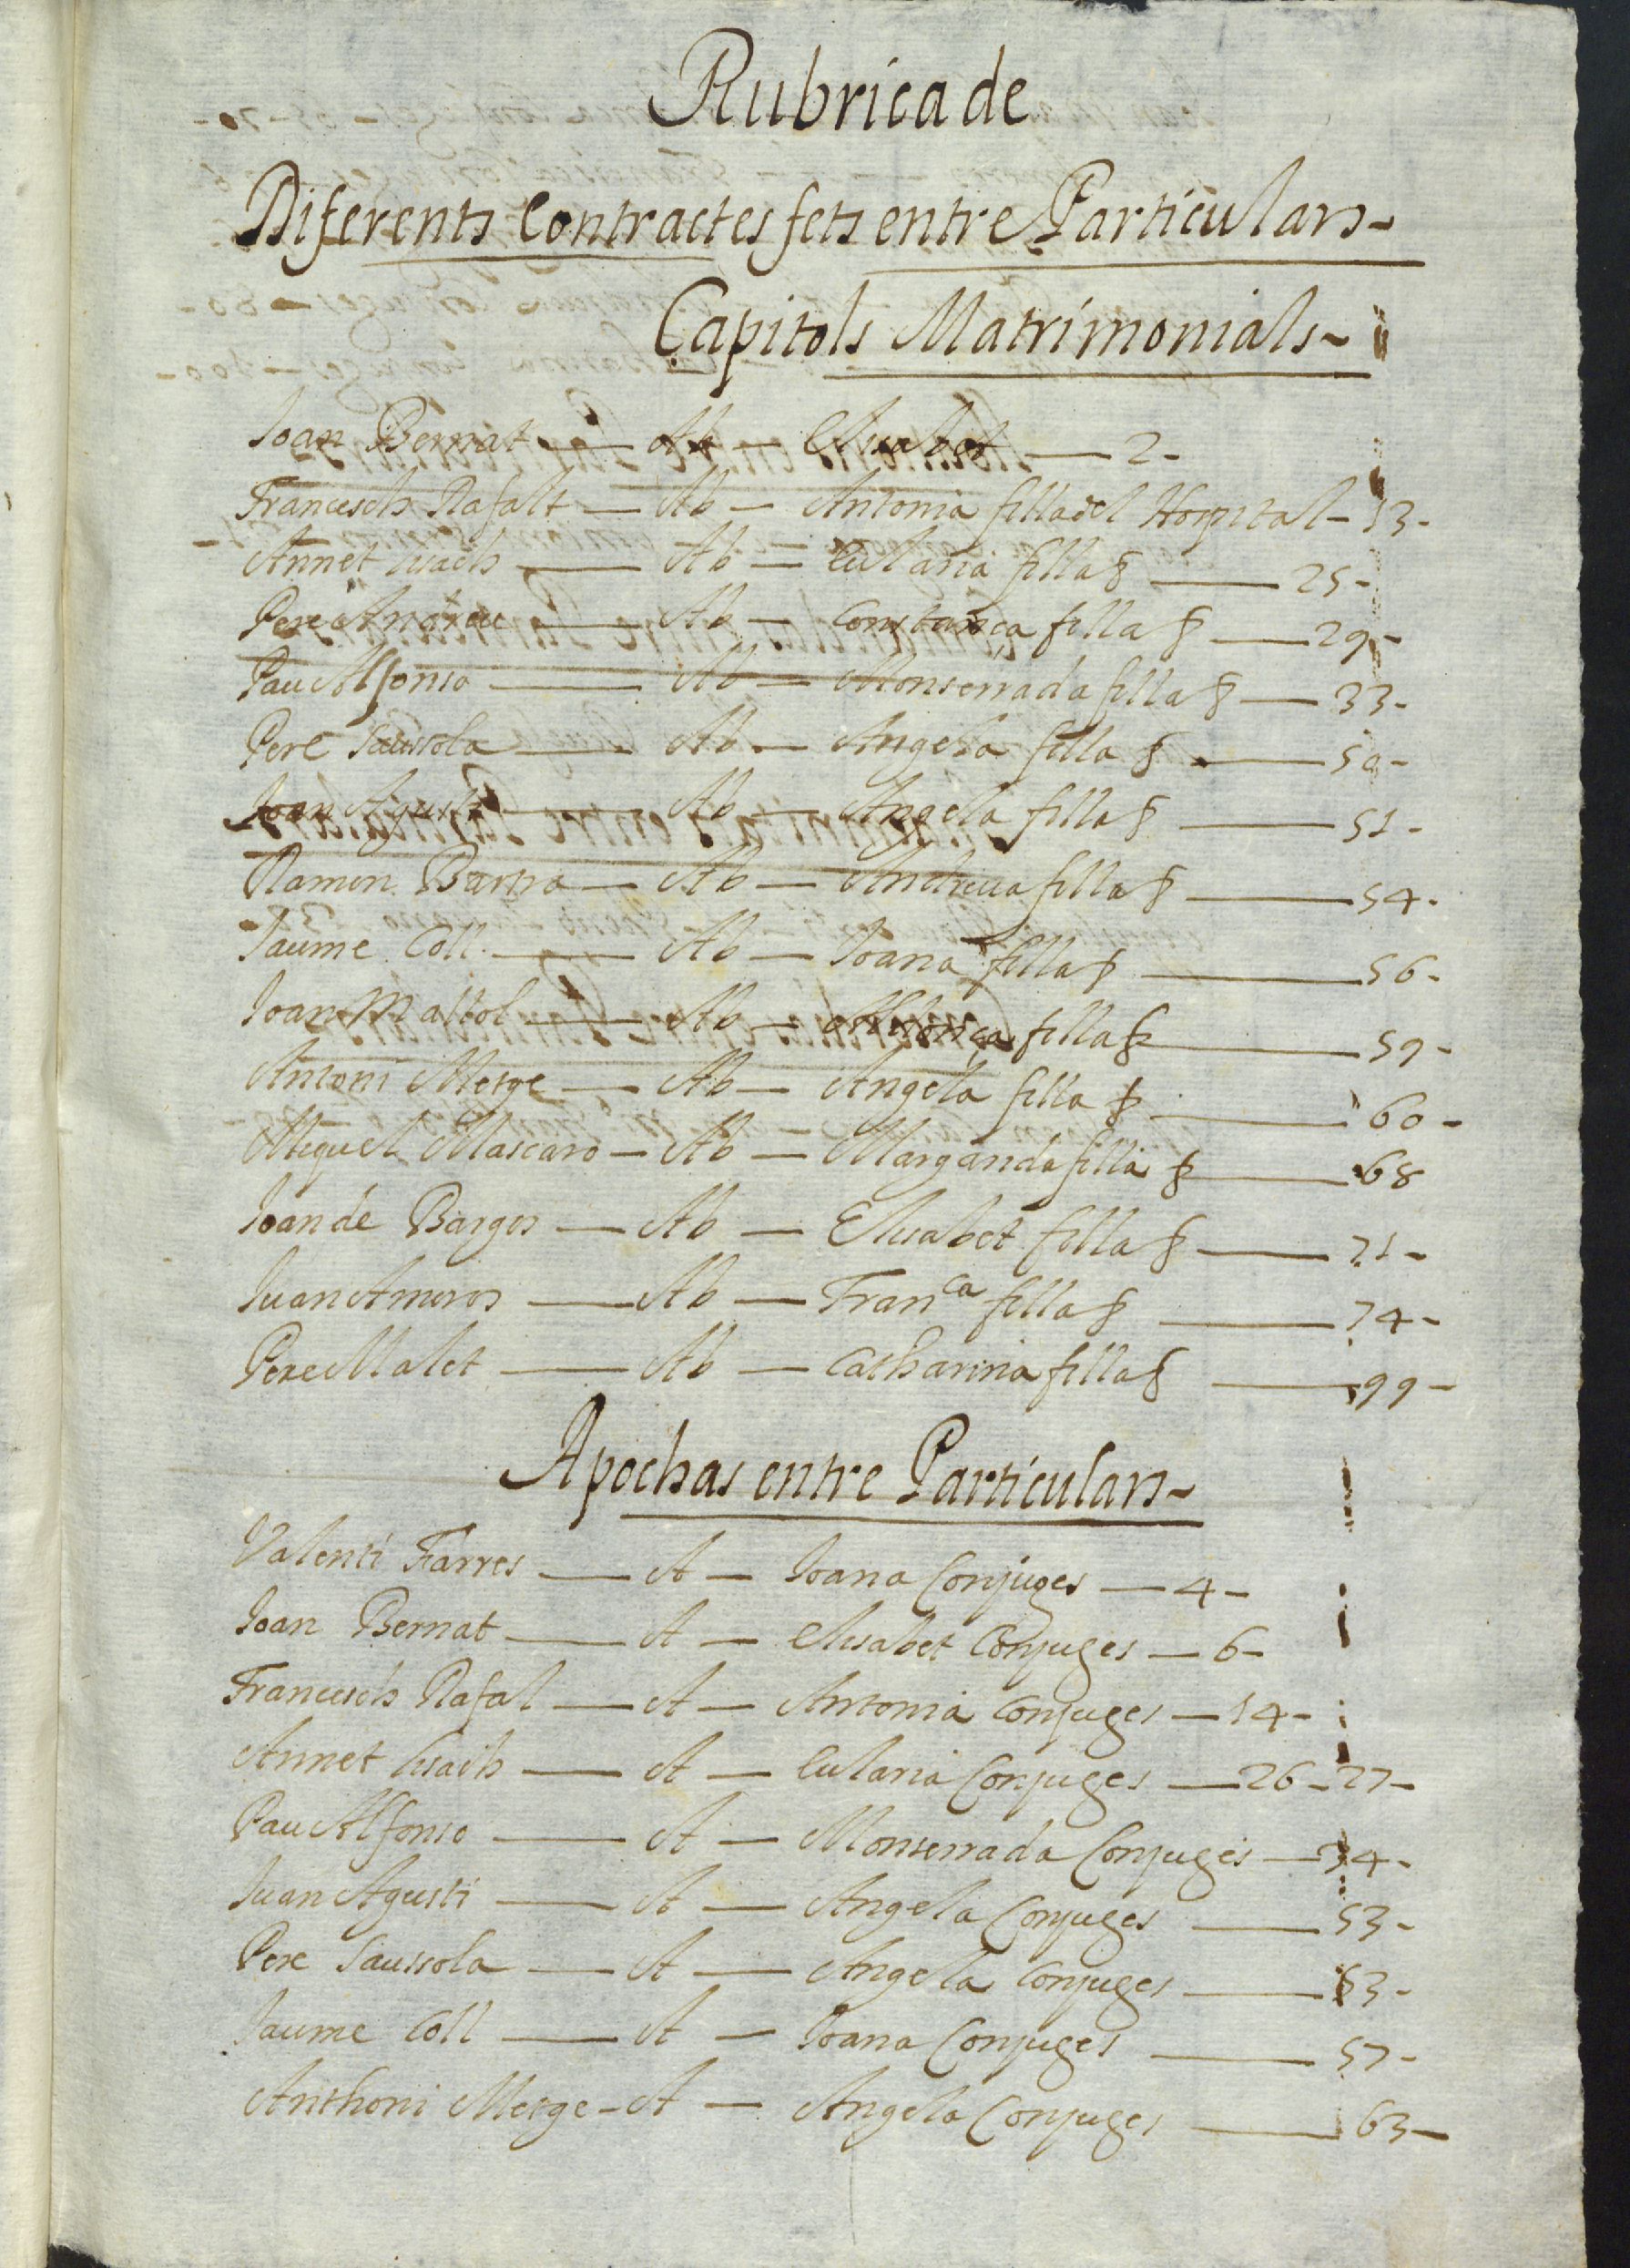 Rubrica de
Diferents Contractes fets entre Particulars-
Capitols Matrimonials-
Joan Bernat — Ab — Elisabet — 2-
Francesch Rafalt — Ab — Antonia filla del Hospital - 13-
Annet — Ab — Eularia filla § — 25-
Pere Andreu — Ab — Constança filla § — 29-
Pau Alfonso — Ab — Monserrada filla § — 33-
Pere Saussola — Ab — Angela filla § — 50-
Joan Agusti — Ab — Angela filla § — 51-
Ramon — Ab — Andreua filla § — 54-
Jaume Coll — Ab — Joana filla § — 56-
Joan Mallol — Ab — filla § — 59-
Antoni Metge — Ab — Angela filla § — 60-
Miquel Mascaro — Ab — Margarida filla § — 68
Joan de Bargos — Ab — Elisabet filla § — 71-
Juan Ameros — Ab — Fran^ca filla § — 74-
Pere Malet — Ab — Catharina filla § — 99-
Apochas entre Particulars-
Valenti Farres — A — Joana Conjuges — 4-
Joan Bernat — A — Elisabet Conjuges — 6-
Francesch Rafal — A — Antonia Conjuges — 14-
Annet — A — Eularia Conjuges — 26-27-
Pau Alfonso — A — Monserrada Conjuges — 34-
Juan Agusti — A — Angela Conjuges — 53-
Pere Saussola — A — Angela Conjuges — 53-
Jaume Coll — A — Joana Conjuges — 57-
Anthoni Metge - A — Angela Conjuges — 63-